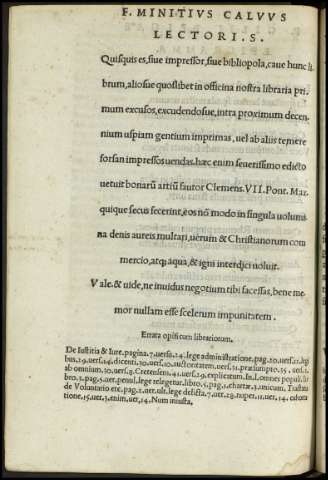 F. MINITIVS CALVVS
LECTORI. S.
Quisquis es, siue impressor, siue bibliopola, caue hunc li
brum, aliosue quoslibet in officina nostra libraria pri
mum excusos, excudendosue, intra proximum decen
nium uspiam gentium imprimas, uel ab aliis temere
forsan impressos uendas. hæc enim seuerissimo edicto
uetuit bonarũ artiũ fautor Clemens. VII. Pont. Max.
quique secus fecerint, eos nõ modo in singula uolumi
na denis aureis multari, uerum & Christianorum com
mercio, atq; aqua, & igni interdici uoluit.
Vale. & uide, ne inuidus negotium tibi facessas, bene me
mor nullam esse scelerum impunitatem.
Errata opificum librariorum.
De Iustitia & Iure. pagina. 7. uersu. 24. lege administratione. pag. 20. uers. 21. legi
bus. 29. uers. 24. dicenti. 30. uers. 10. auctoritatem. uers. 31. præsumpto. 35. uers. 1.
ab omnium. 10. uers. 8. Cretensem. 45. uers. 29. explicetum. In. l. omnes populi. li
bro. 2. pag. 5. uer. penul. lege relegetur. libro. 5. pag. 1. chartæ. 3. unicum. Tractatu
de Voluntario &c. pag. 2. uer. ult. lege delicta. 7. uer. 28. nuper. 11. uer. 14. edocta
tione. 15. uer. 3. enim. uer. 14. Num iniusta.